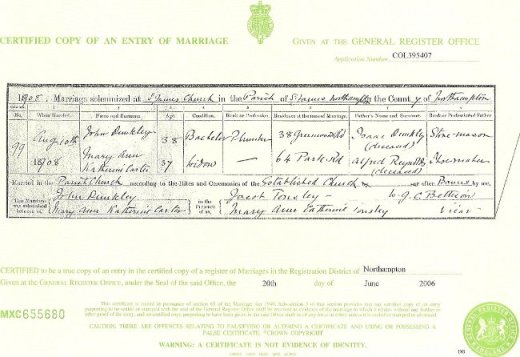 CERTIFIED COPY OF AN ENTRY OF MARRIAGE
GIVEN AT THE GENERAL REGISTER OFFICE
Application Number COL395407
1908. Marriage solemnized at St James Church in the Parish of St James Northampton in the County of Northampton
No. When Married. Name and Surname. Age Condition. Rank or Profession. Residence at the time of Marriage. Father's Name and Surname. Rank or Profession of Father.
99 Aug 10th 1908 John Dunkley 38 Bachelor Plumber 38 Greenwood Rd Isaac Dunkley (deceased) Stone-mason
Mary Ann Katherine Carter 37 Widow — 64 Park Rd Alfred (deceased) Shoemaker
Married in the Parish Church according to the Rites and Ceremonies of the Established Church after Banns by me,
This Marriage was solemnized between us, John Dunkley Mary Ann Katherine Carter in the Presence of us, Jacob Tousley Mary Ann Katherine Tousley Vicar
CERTIFIED to be a true copy of an entry in the certified copy of a register of Marriages in the Registration District of Northampton
Given at the GENERAL REGISTER OFFICE, under the Seal of the said Office, the 20th day of June 2006
MXC655680
CAUTION: THERE ARE OFFENCES RELATING TO FALSIFYING OR ALTERING A CERTIFICATE AND USING OR POSSESSING A
FALSE CERTIFICATE. ©CROWN COPYRIGHT
WARNING: A CERTIFICATE IS NOT EVIDENCE OF IDENTITY.